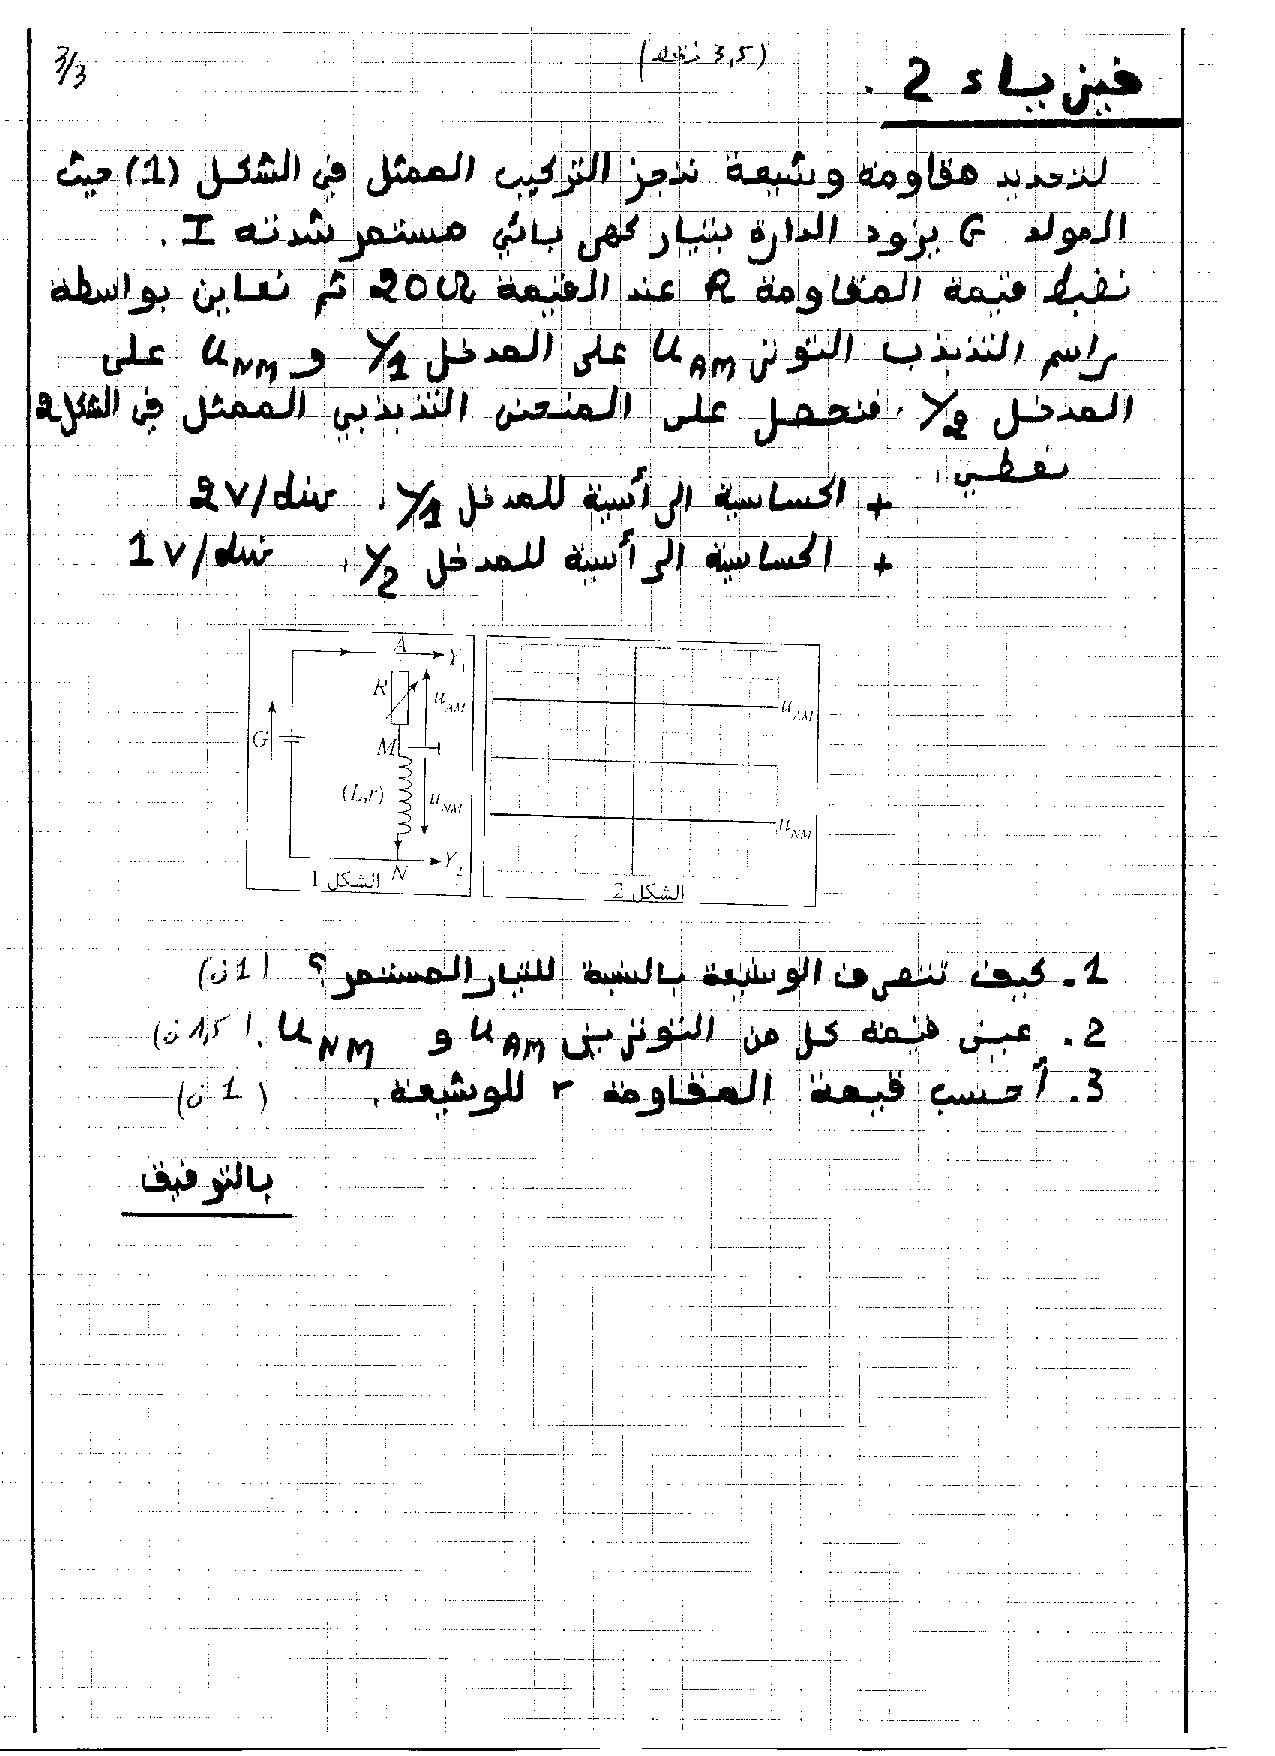 3/3
(3,5 نقط)
فيزياء 2.
لتحديد مقاومة وشيعة ننجز التركيب الممثل في الشكل (1) حيث
المولد G يزود الدارة بتيار كهربائي مستمر شدته I.
نضبط قيمة المقاومة R عند القيمة 20Ω ثم نعاين بواسطة
راسم التذبذب التوتر u_AM على المدخل Y1 و u_NM على
المدخل Y2، فنحصل على المنحنى التذبذبي الممثل في الشكل 2
نعطي:
+ الحساسية الرأسية للمدخل Y1، 2V/div
+ الحساسية الرأسية للمدخل Y2، 1V/div
A Y1
R u_AM
G M
(L,r) u_NM
N Y2
الشكل 1
u_AM
u_NM
الشكل 2
1. كيف تتصرف الوشيعة بالنسبة للتيار المستمر؟ (1ن)
2. عين قيمة كل من التوترين u_AM و u_NM. (1,5ن)
3. أحسب قيمة المقاومة r للوشيعة. (1ن)
بالتوفيق